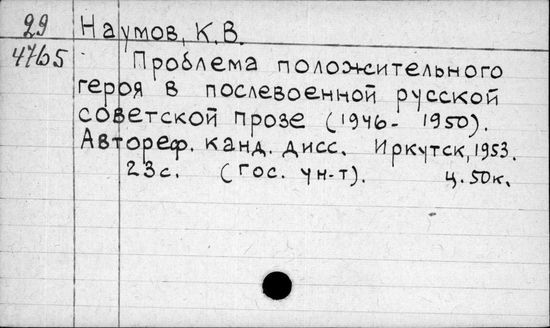 29 Наумов, К.В.
4765 Проблема положительного
героя в послевоенной русской
советской прозе (1946- 1950).
Автореф. канд. дисс. Иркутск, 1953.
23с. (Гос. ун-т). ц. 50к.